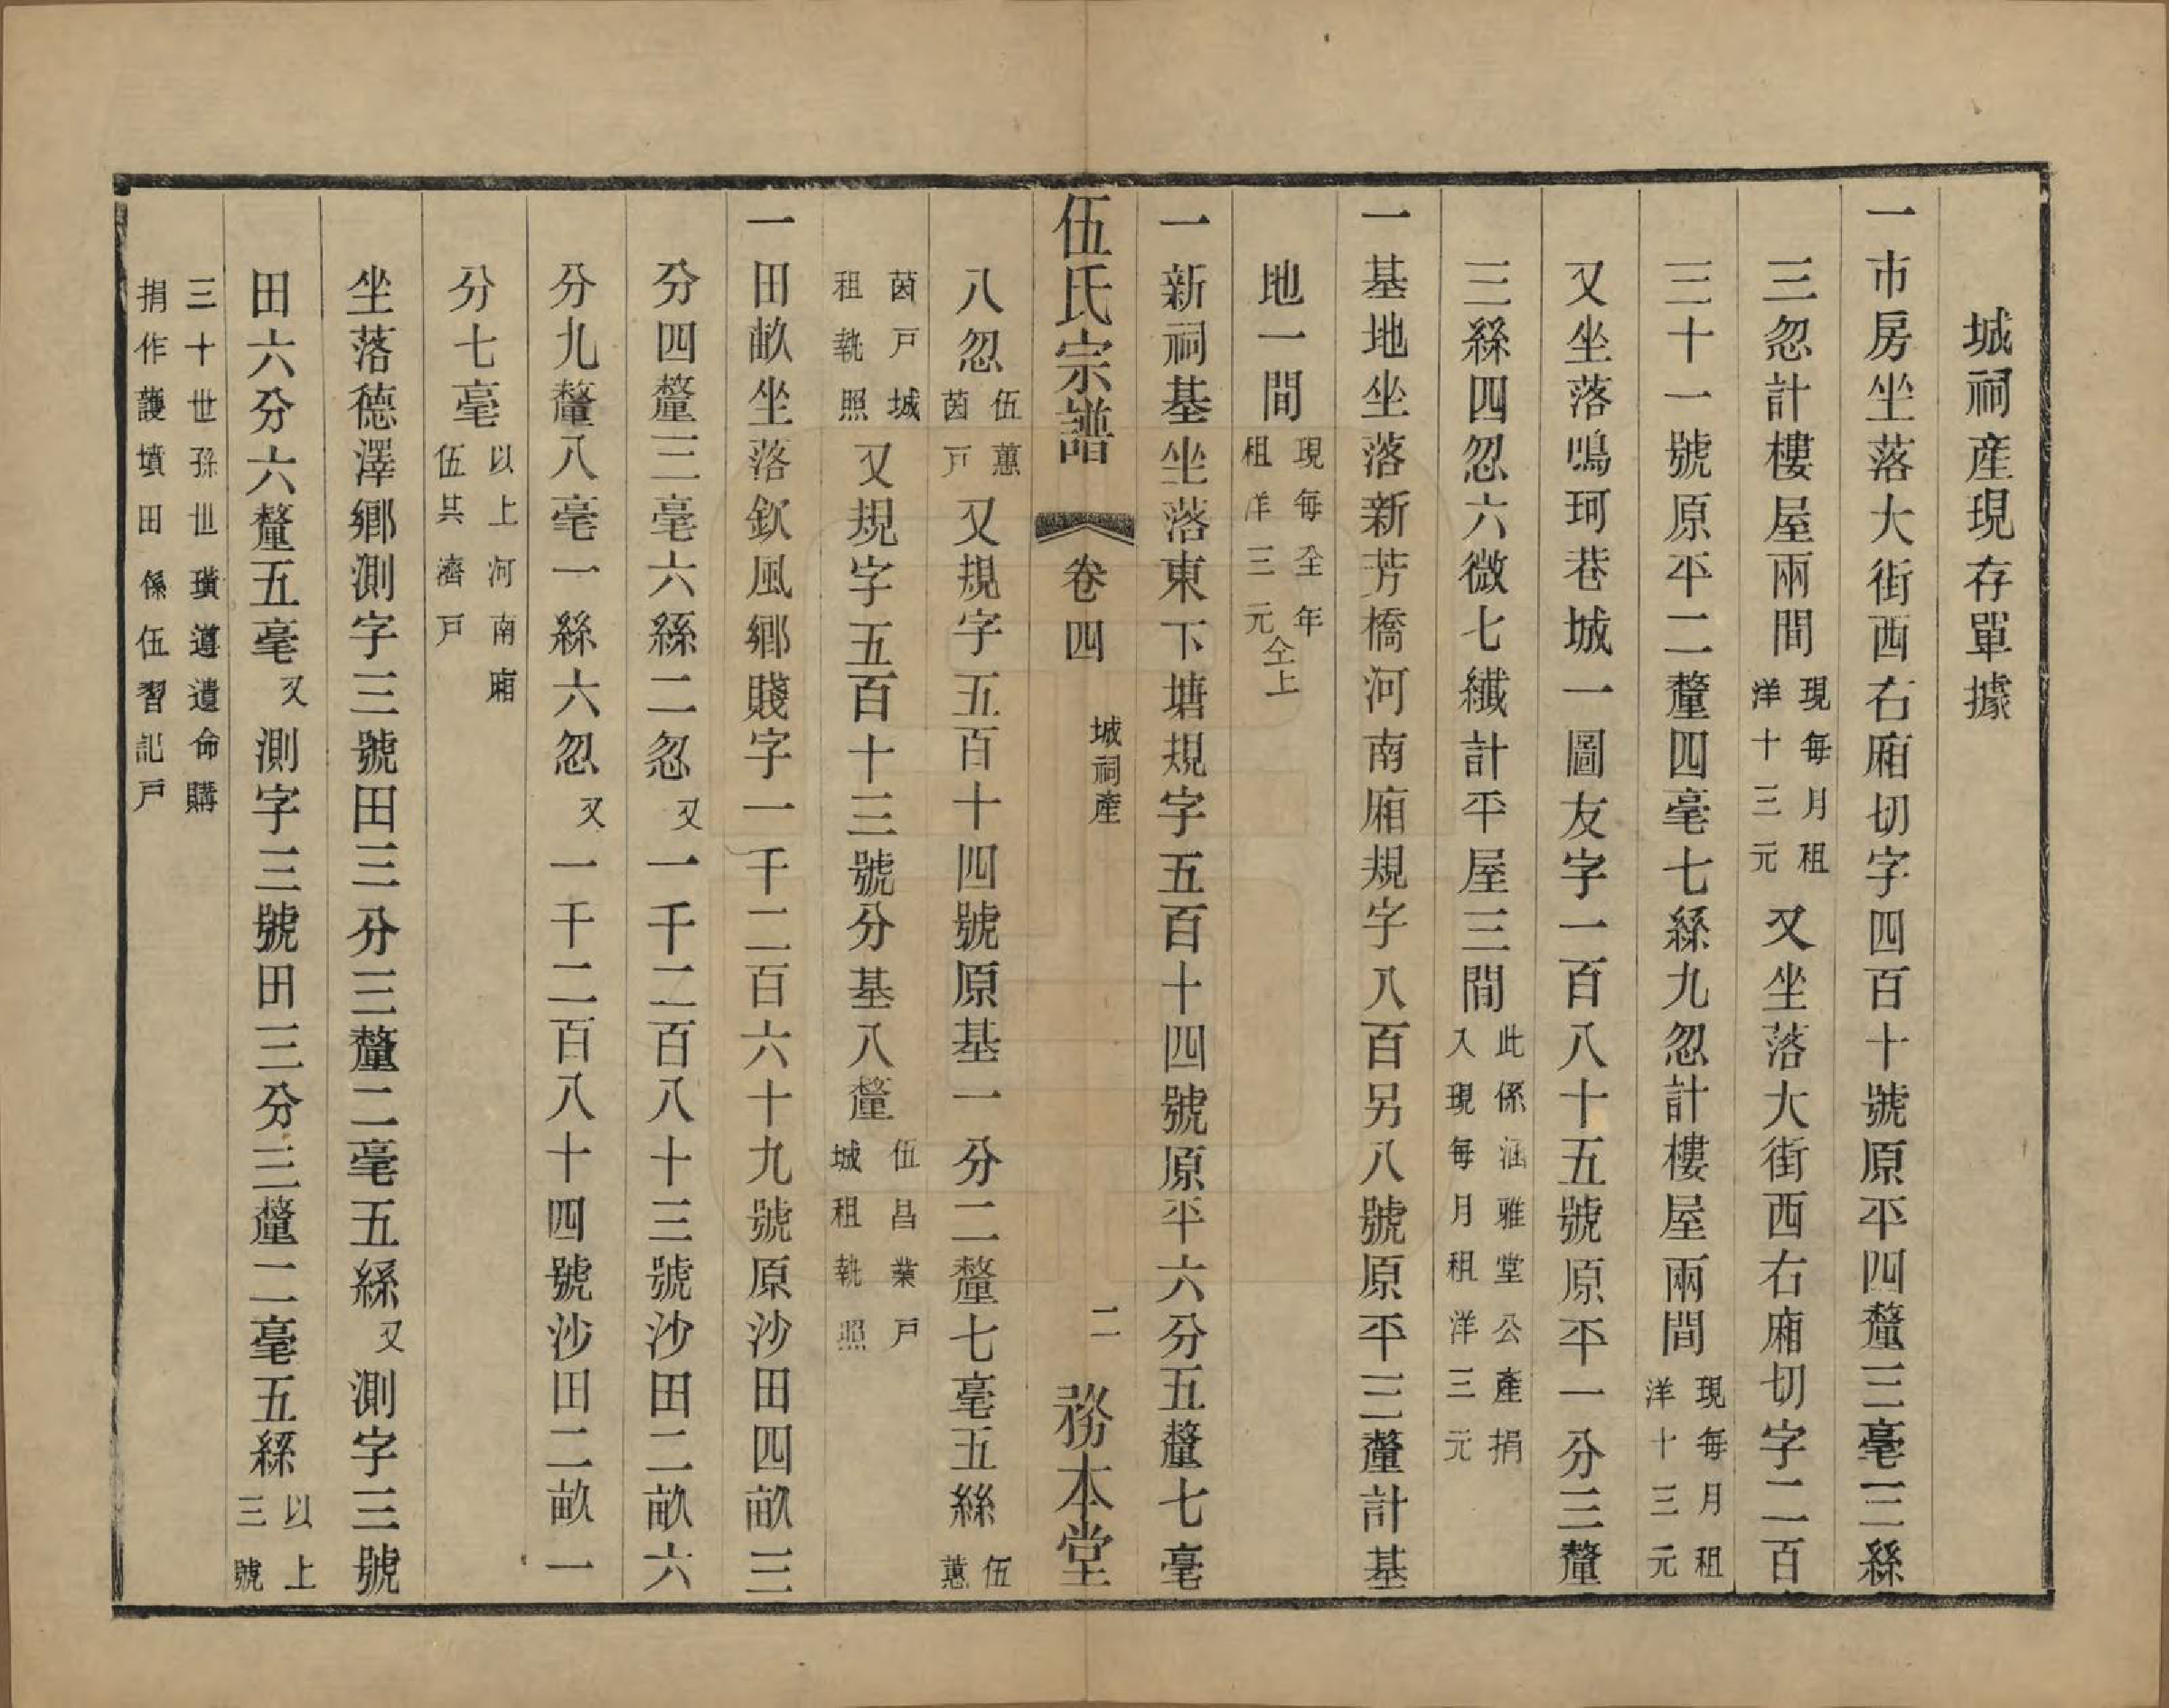 城祠產現存單據
一市房坐落大街西右廂切字四百十號原平四釐三毫三絲
三忽計樓屋兩間現每月租洋十三元又坐落大街西右廂切字二百
三十一號原平二釐四毫七絲九忽計樓屋兩間現每月租洋十三元
又坐落鳴珂巷城一圖友字一百八十五號原平一分三釐
三絲四忽六微七纖計平屋三間此係涵雅堂公產捐入現每月租洋三元
一基地坐落新芳橋河南廂規字八百另八號原平三釐計基
地一間現每全年租洋三元仝上
一新祠基坐落東下塘規字五百十四號原平六分五釐七毫
伍氏宗譜 卷四 城祠產 二 務本堂
八忽伍蕙茵戸又規字五百十四號原基一分二釐七毫五絲伍蕙
茵戸城租執照又規字五百十三號分基八釐伍昌業戸城租執照
一田畝坐落欽風鄉賤字一千二百六十九號原沙田四畝三
分四釐三毫六絲二忽又一千二百八十三號沙田二畝六
分九釐八毫一絲六忽又一千二百八十四號沙田二畝一
分七毫以上河南廂伍其濟戸
坐落德澤鄉測字三號田三分三釐二毫五絲又測字三號
田六分六釐五毫又測字三號田三分三釐二毫五絲以上三號
三十世孫世璜遵遺命購捐作護墳田係伍習記戸